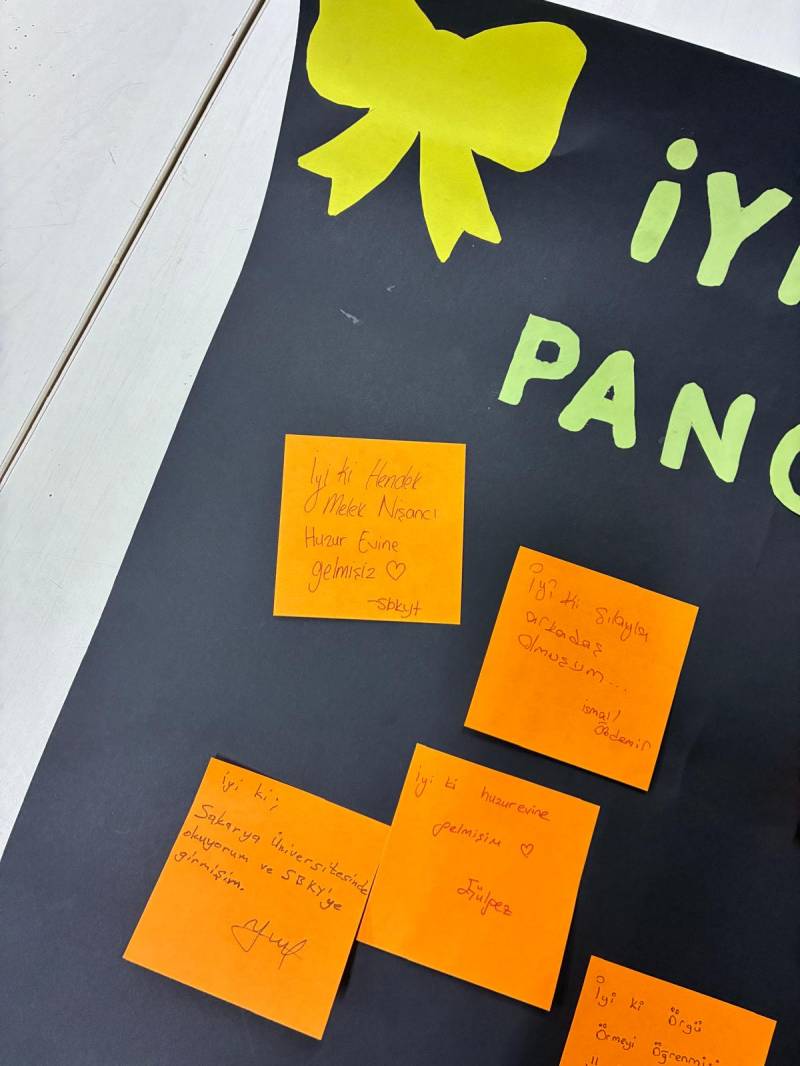 İYİ
PANO
İyi ki Hendek
Melek Nişancı
Huzur Evine
gelmişiz ♡
-SBKYT
İyi ki Sılayla
arkadaş
olmuşum...
ismail
Özdemir
iyi ki;
Sakarya Üniversitesinde
okuyorum ve SBKY'ye
girmişim.
iyi ki huzurevine
gelmişim ♡
İyi ki Örgü
Örmeyi Öğrenmiş